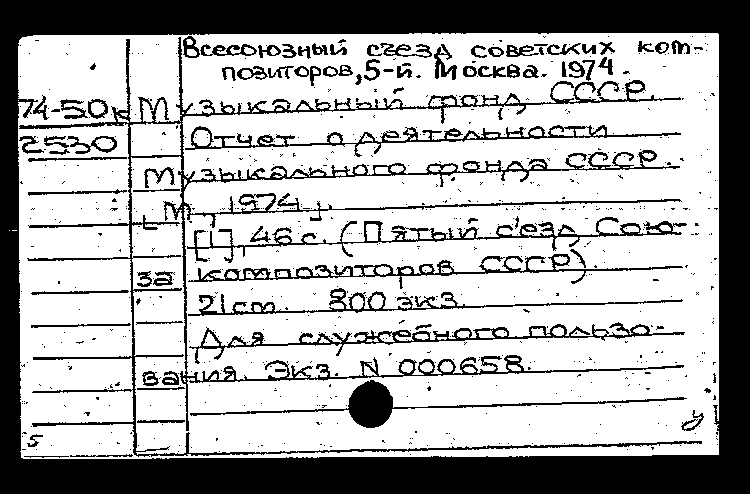 Всесоюзный съезд советских ком-
позиторов, 5-й. Москва. 1974.
74-50к Музыкальный фонд СССР.
2530 Отчет о деятельности
Музыкального фонда СССР.
[М., 1974].
[1], 46 с. (Пятый съезд Сою-
за композиторов СССР)
21 cm. 800 экз.
Для служебного пользо-
вания. Экз. N 000658.
5